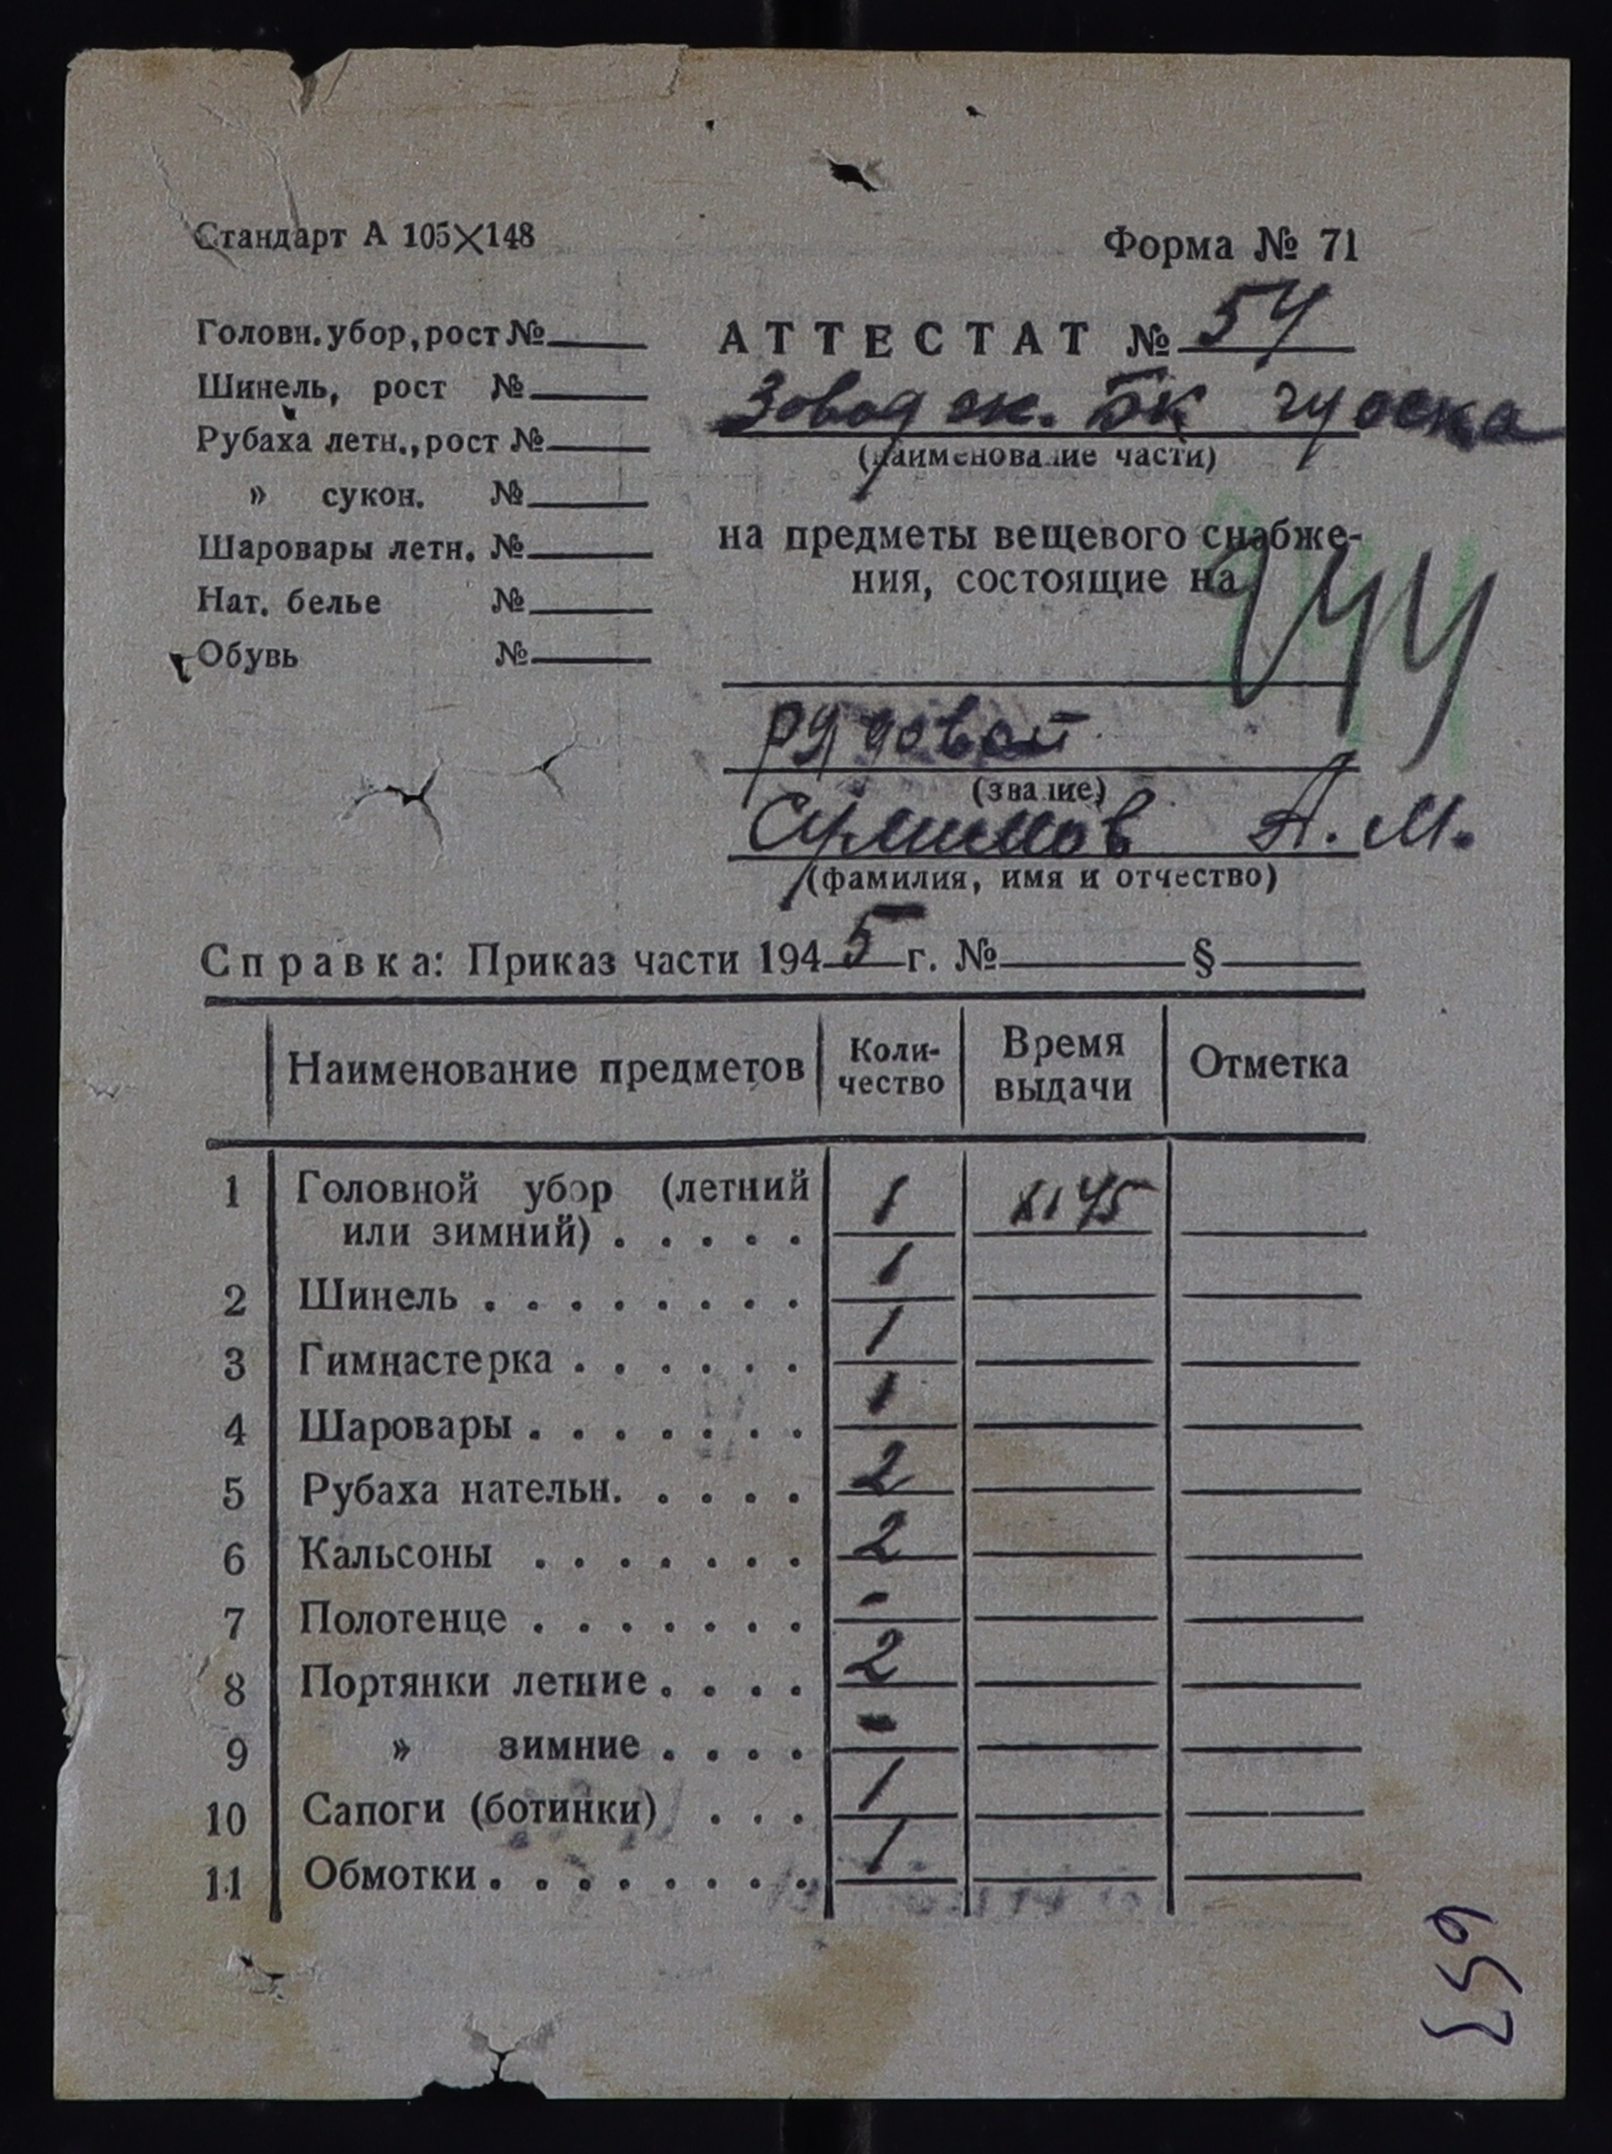 Стандарт А 105×148
Форма № 71
Головн. убор, рост №
Шинель, рост №
Рубаха летн., рост №
» сукон. №
Шаровары летн. №
Нат. белье №
Обувь №
АТТЕСТАТ № 54
(наименование части)
на предметы вещевого снабже-
ния, состоящие на
244
рядовой
(звание)
А. М.
(фамилия, имя и отчество)
Справка: Приказ части 1945 г. № §
Наименование предметов Коли-чество Время выдачи Отметка
1 Головной убор (летний
или зимний) . . . . . 1 XI 45
2 Шинель . . . . . . . . 1
3 Гимнастерка . . . . . . 1
4 Шаровары . . . . . . . 1
5 Рубаха нательн. . . . . 2
6 Кальсоны . . . . . . . 2
7 Полотенце . . . . . . . -
8 Портянки летние . . . . 2
9 » зимние . . . . -
10 Сапоги (ботинки) . . . 1
11 Обмотки . . . . . . . . 1
659